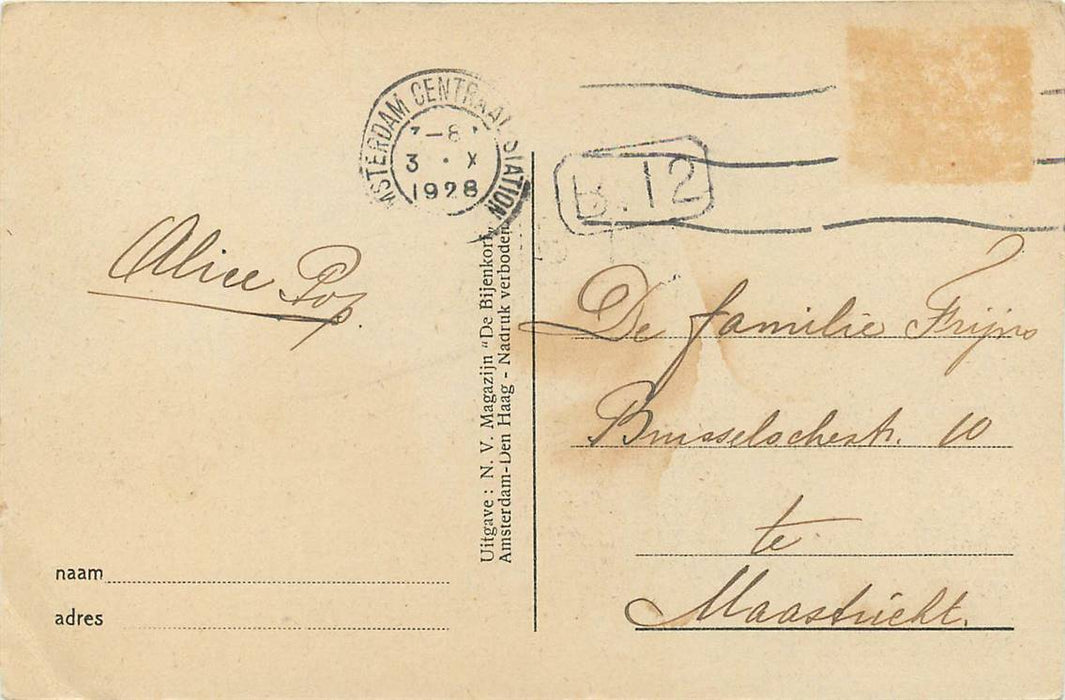 AMSTERDAM CENTRAAL STATION
7-8
3 · X
1928
B.12
Alice Pop.
Uitgave: N. V. Magazijn "De Bijenkorf"
Amsterdam-Den Haag - Nadruk verboden
De familie Frijns
Brusselschestr. 10
te
Maastricht.
naam
adres